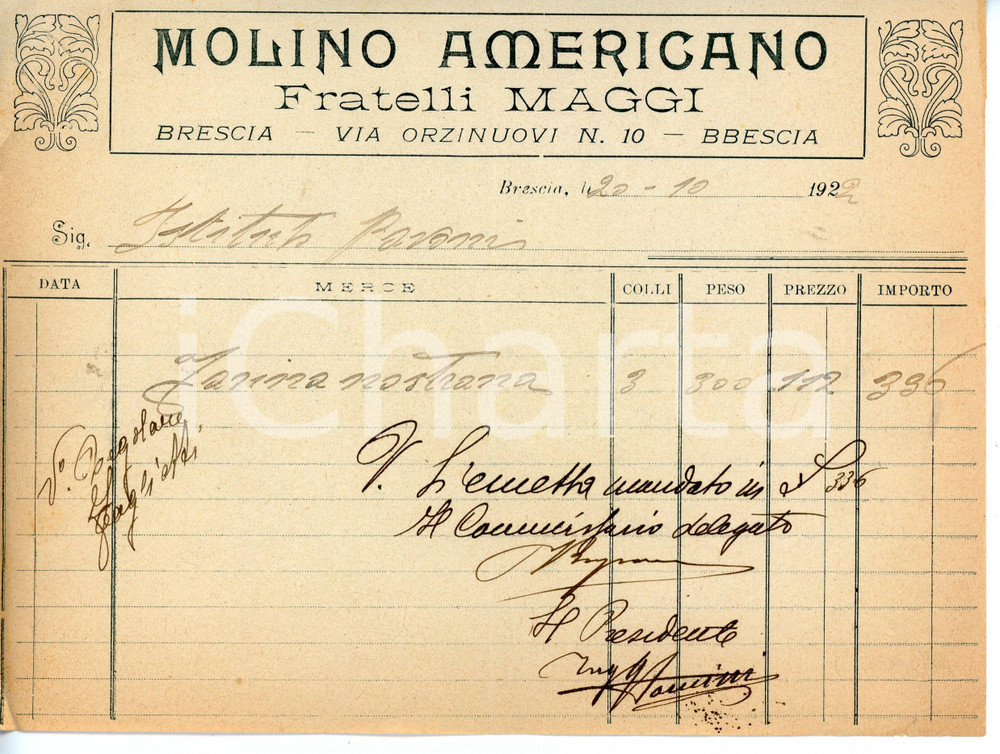 MOLINO AMERICANO
Fratelli MAGGI
BRESCIA — VIA ORZINUOVI N. 10 — BBESCIA
Brescia, li 20 - 10 1922
Sig. Istituto Pavoni
DATA MERCE COLLI PESO PREZZO IMPORTO
iCharta
Farina nostrana 3 300 112 336
V. Si emetta mandato in £ 336
V°. Regolare
Il Commissario delegato
Il Presidente
Ing